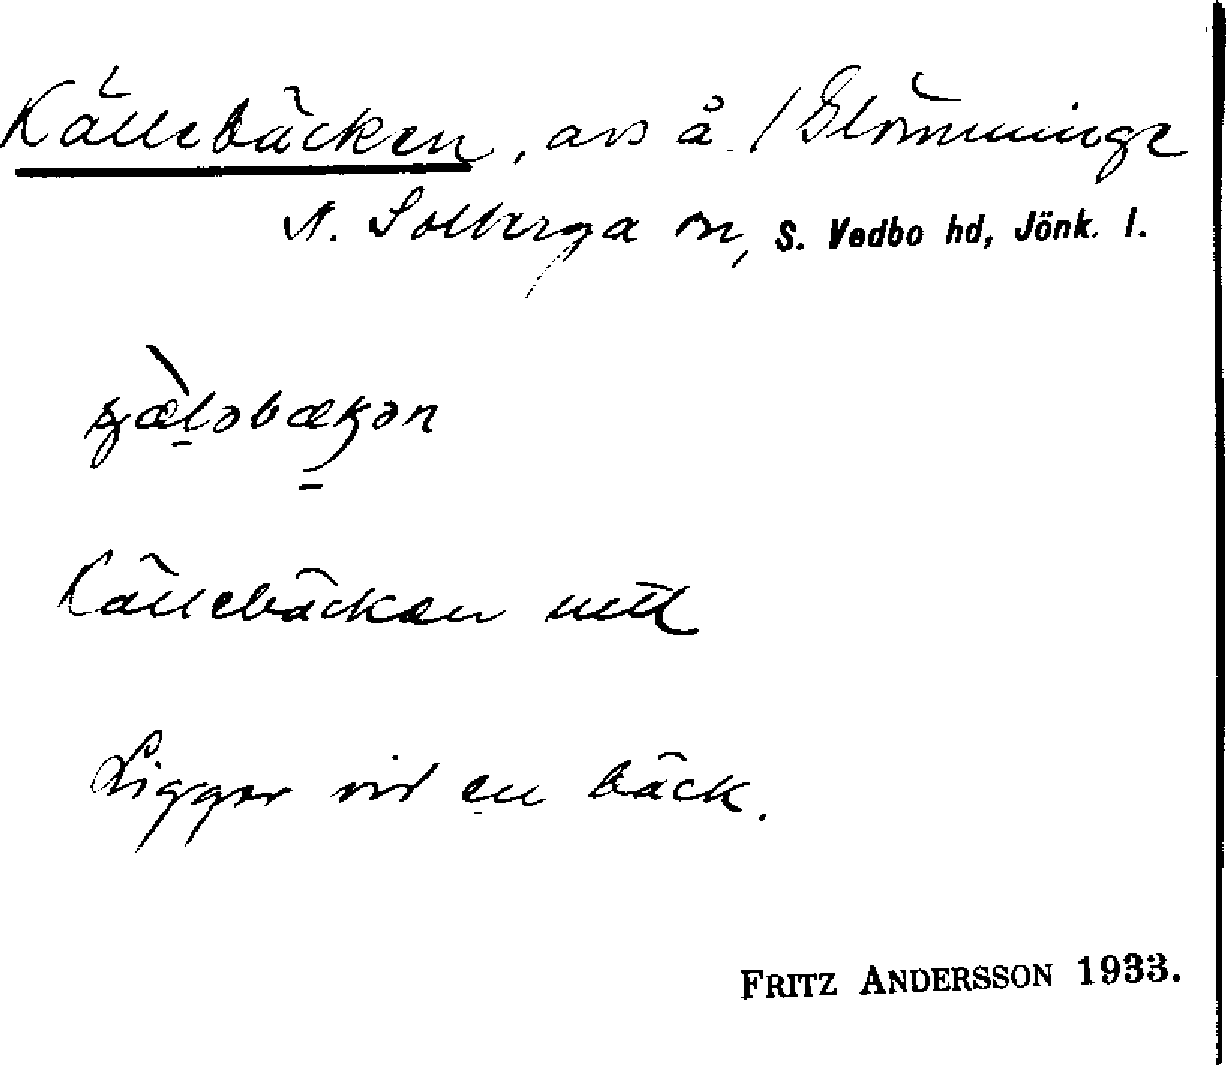 Källebäcken, avs å / Glömminge
N. Solberga sn, S. Vedbo hd, Jönk. l.
Källebäcken
Ligger vid en bäck.
FRITZ ANDERSSON 1933.